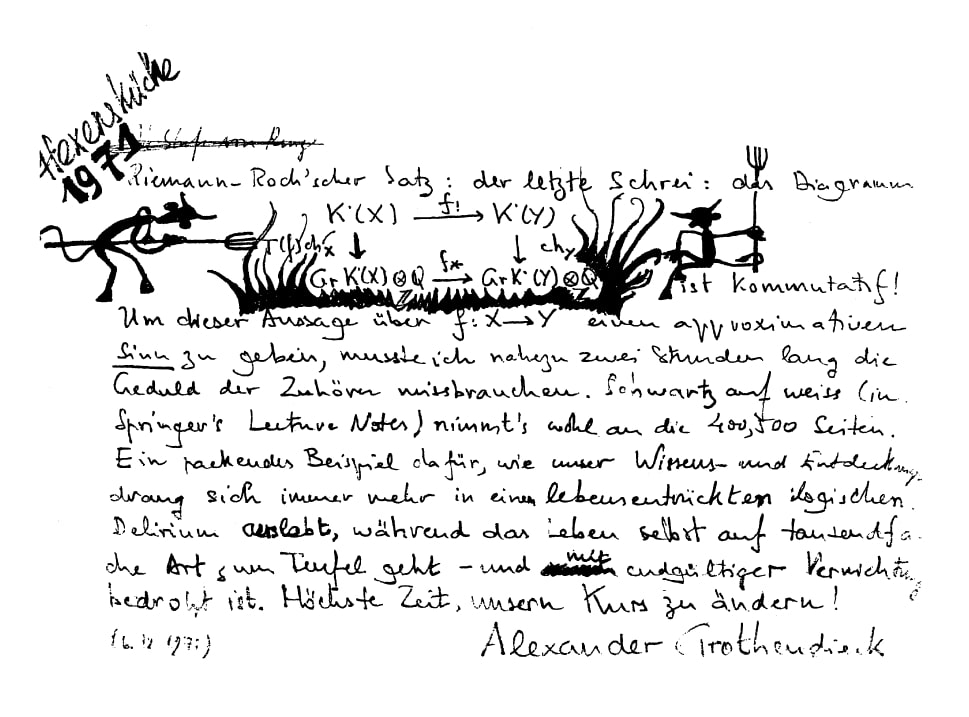 Hexenküche
1971
Riemann-Roch'scher Satz: der letzte Schrei: das Diagramm
K˙(X) f! → K˙(Y)
T(f)ch_X ↓ ↓ ch_Y
Gr K˙(X)⊗Q f* → Gr K˙(Y)⊗Q
Z Z
ist kommutatif!
Um dieser Aussage über f: X → Y einen approximativen
Sinn zu geben, musste ich nahezu zwei Stunden lang die
Geduld der Zuhörer missbrauchen. Schwartz auf weiss (in
Springer's Lecture Notes) nimmt's wohl an die 400, 500 Seiten.
Ein packendes Beispiel dafür, wie unser Wissens- und Entdeckungs
drang sich immer mehr in einem lebensentrückten logischen
Delirium auslebt, während das Leben selbst auf tausendfa
che Art zum Teufel geht - und mit endgültiger Vernichtung
bedroht ist. Höchste Zeit, unsern Kurs zu ändern!
Alexander Grothendieck